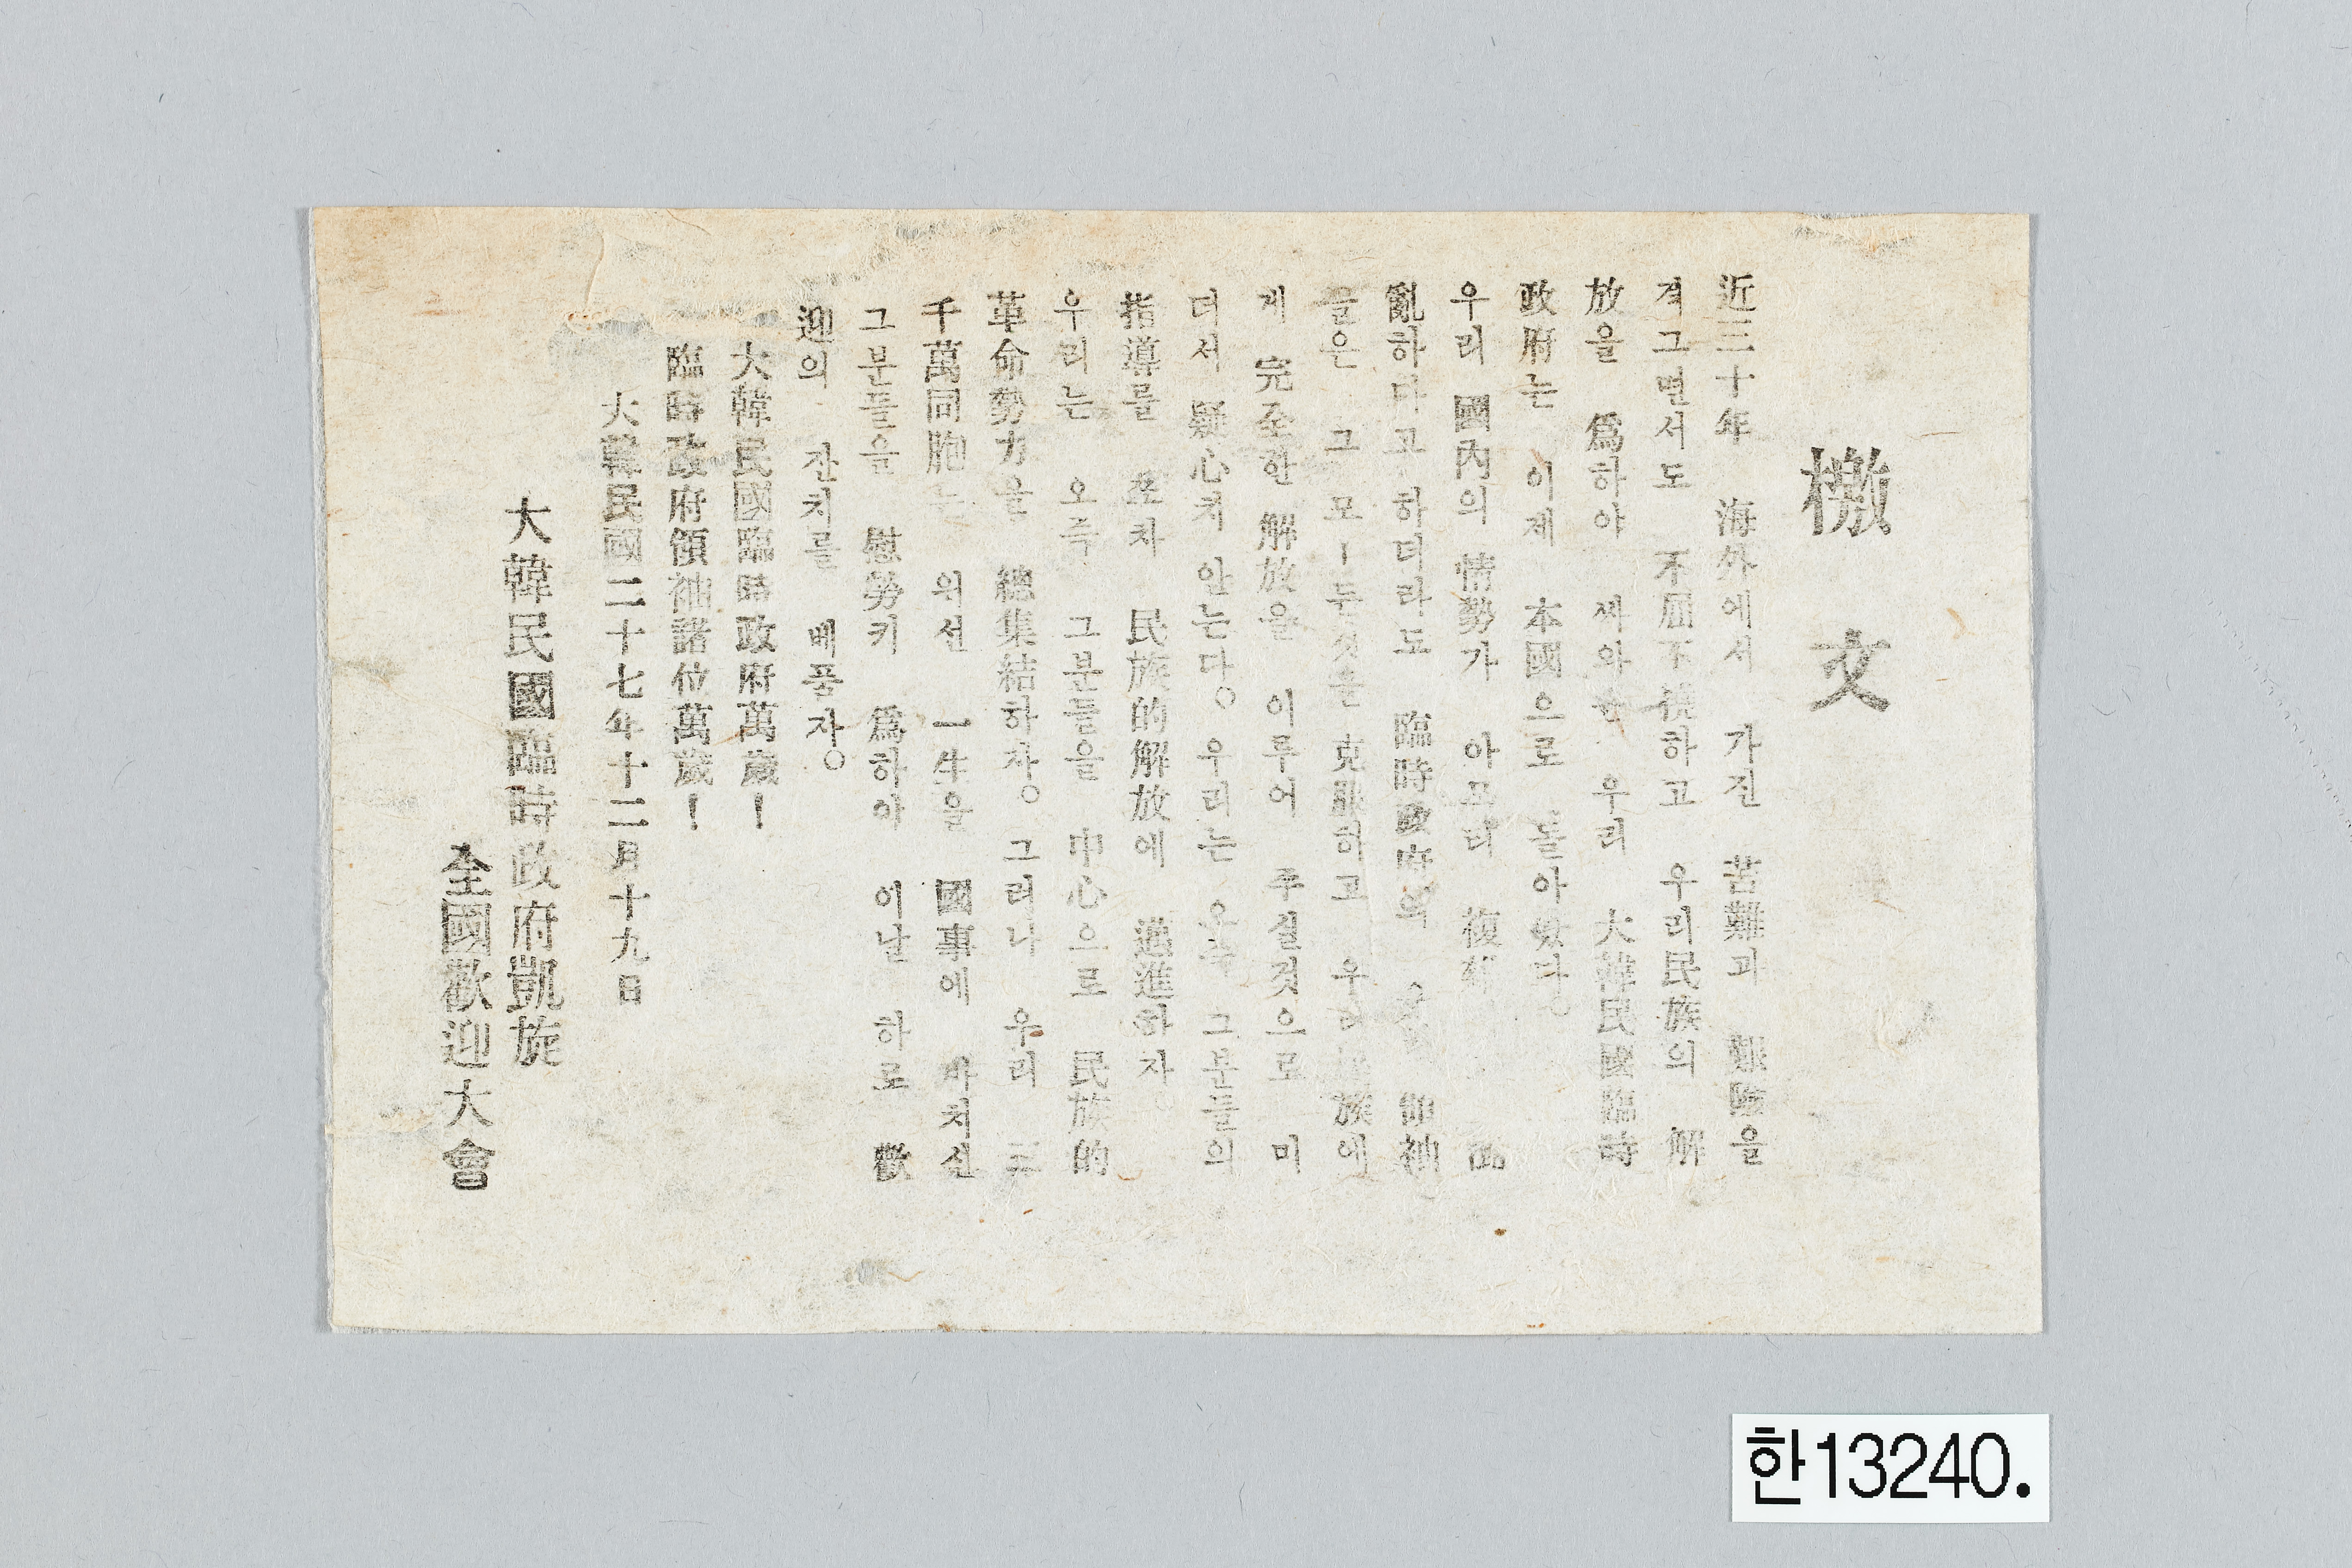 檄文
近三十年 海外에서 가진 苦難과 艱險을
격그면서도 不屈不撓하고 우리民族의 解
放을 爲하야 싸와온 우리 大韓民國臨時
政府는 이제 本國으로 돌아왔다。
우리 國內의 情勢가 아모리 複雜 混
亂하다고 하더라도 臨時政府의 領袖
들은 그 모ー든것을 克服하고 우리民族에
게 完全한 解放을 이루어 주실것으로 미
더서 疑心치 안는다。 우리는 오즉 그분들의
指導를 조차 民族的解放에 邁進하자
우리는 오즉 그분들을 中心으로 民族的
革命勢力을 總集結하자。 그러나 우리 三
千萬同胞는 위선 一生을 國事에 바치신
그분들을 慰勞키 爲하야 이날 하로 歡
迎의 잔치를 베풀자。
大韓民國臨時政府萬歲!
臨時政府領袖諸位萬歲!
大韓民國二十七年十二月十九日
大韓民國臨時政府凱旋
全國歡迎大會
한13240.